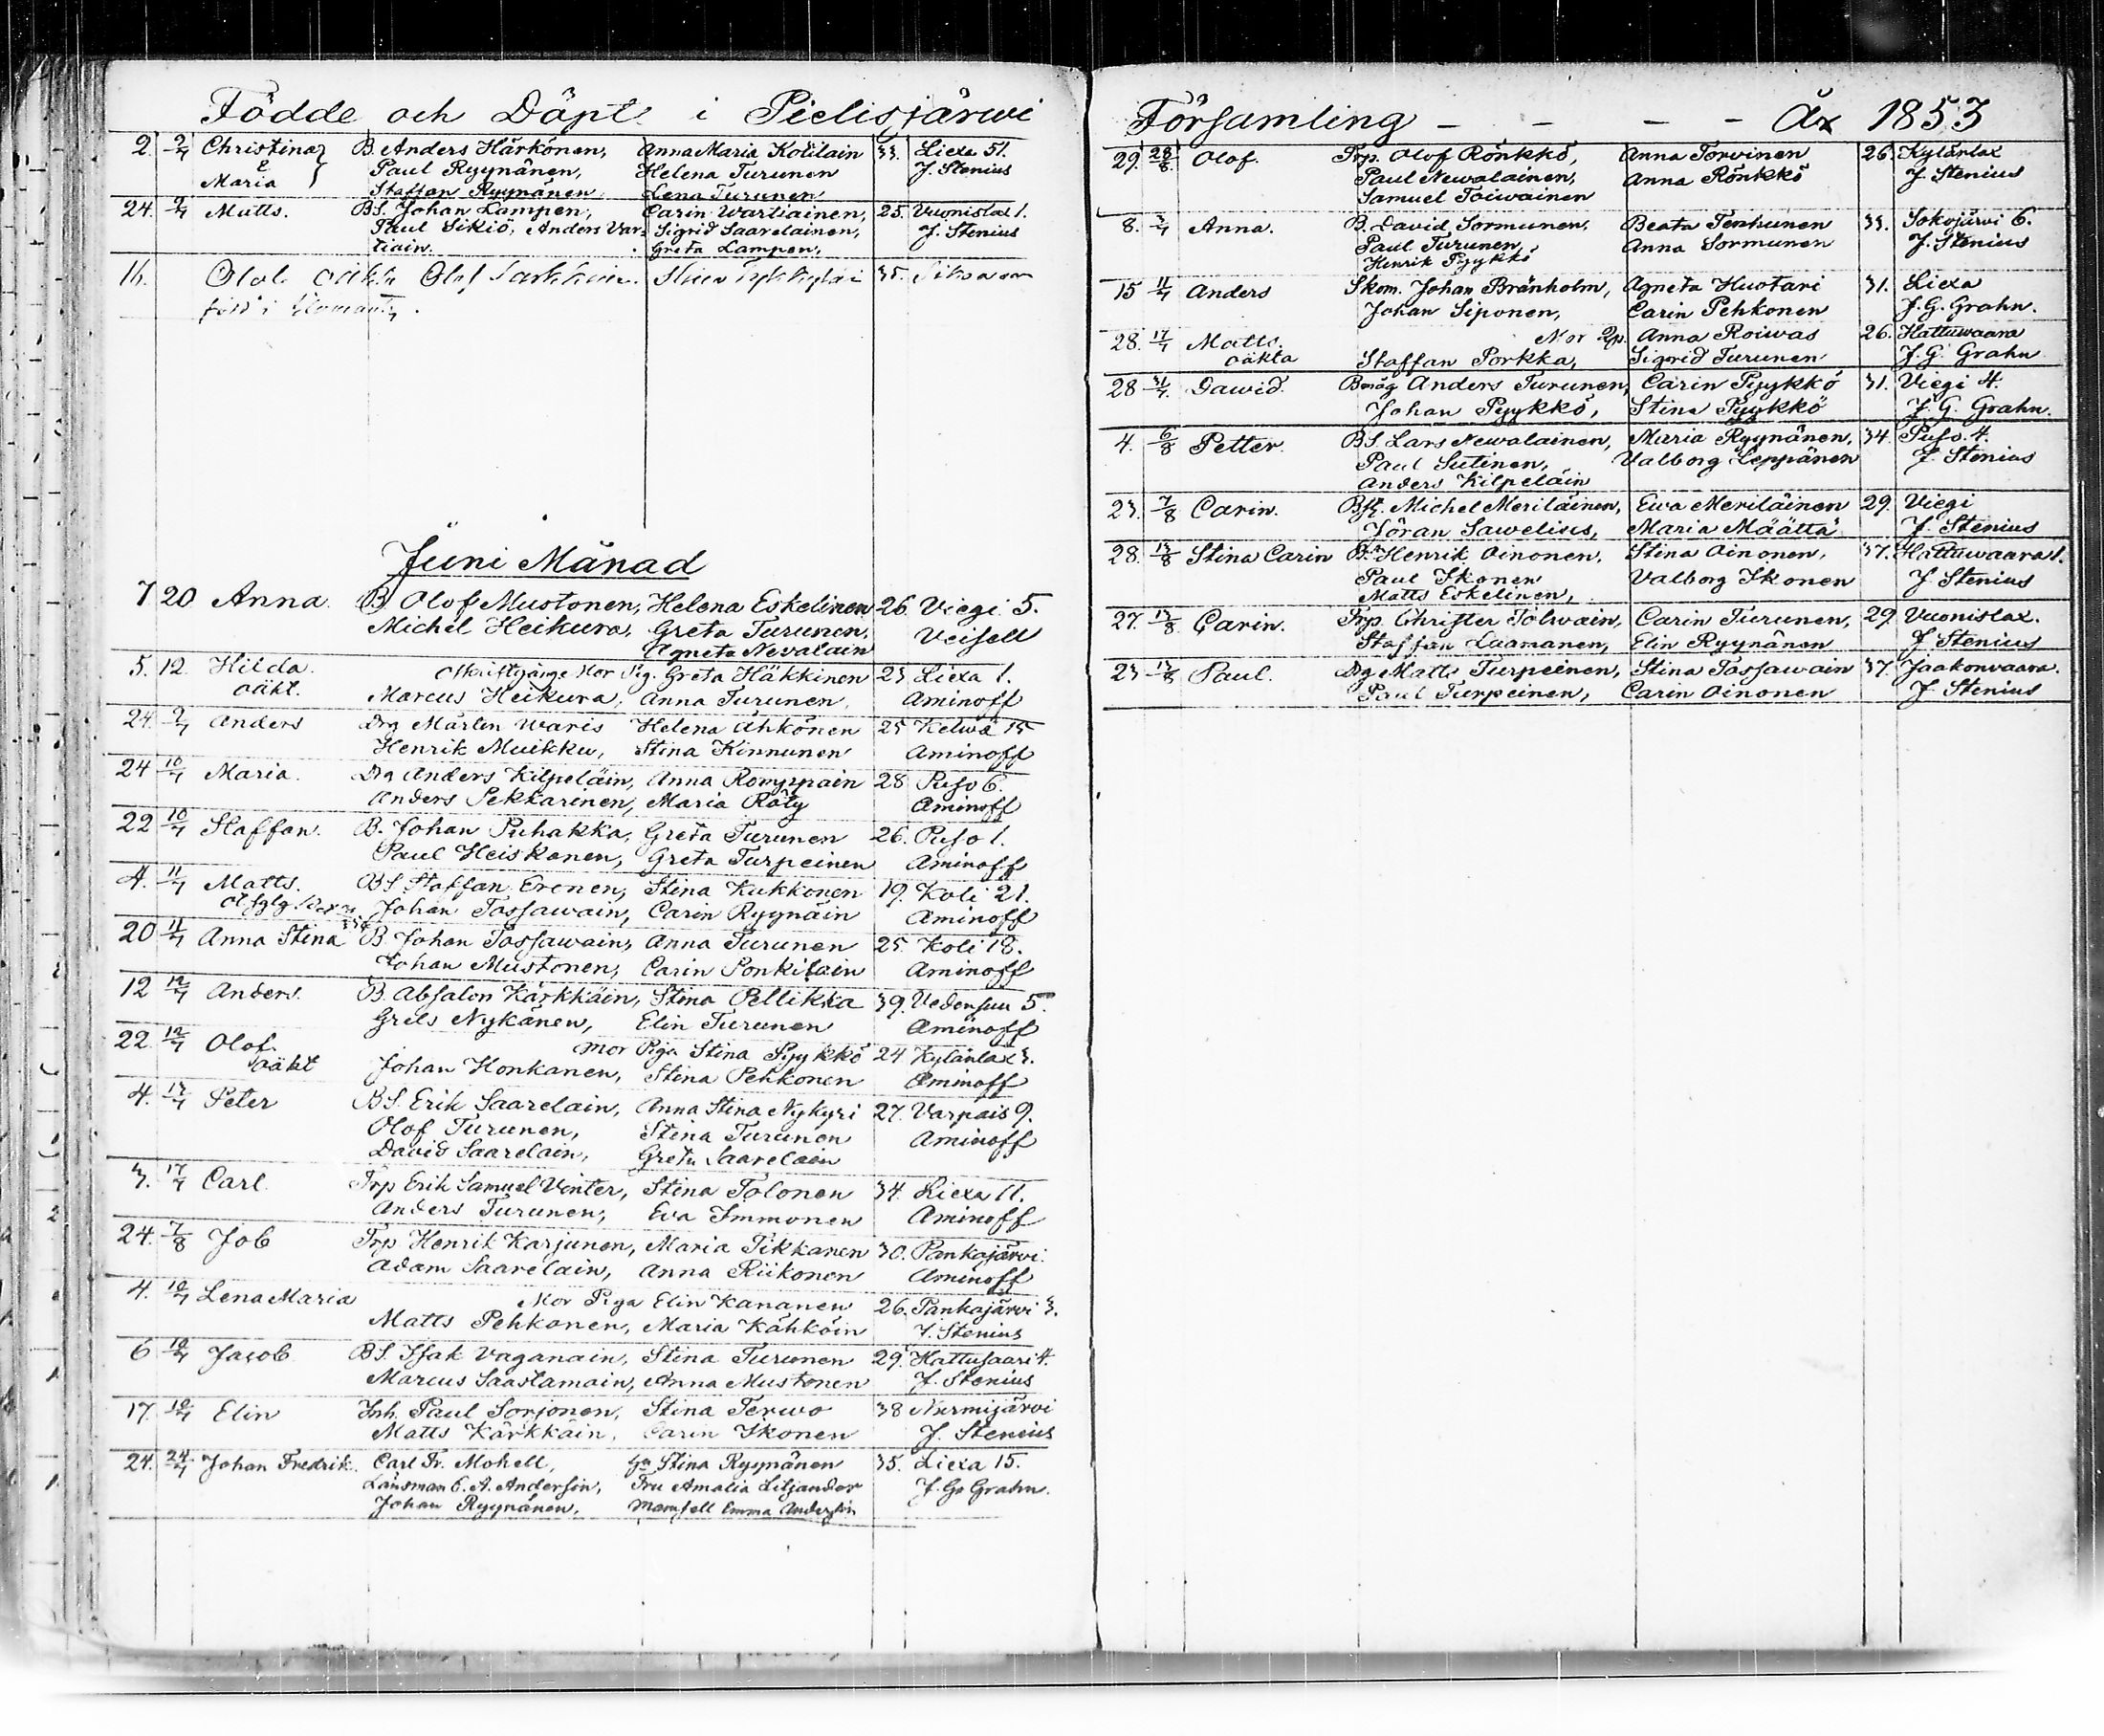 Födde och Döpte i Pielisjärwi
2. 2/7 Christina & B. Anders Härkönen, Anna Maria Kotilain 33. Liexa 51.
Maria Paul Ryynänen, Helena Turunen J. Stenius
Staffan Ryynänen. Lena Turunen
24. Matts. BS. Johan Lampen, Carin Wartiainen, 25. Vuonislax 1.
Paul Sikiö, Anders Var- Sigrid Saarelainen, J. Stenius
tiain. Greta Lampen,
16. Olof oäkta Olof 35.
född i
Juni Månad
7 20 Anna. B. Olof Mustonen, Helena Eskelinen 26. Viegi 5.
Michel Heikura, Greta Turunen, Veisell
Agneta Nevalain
5. 12. Hilda. Mor Pig. Greta Häkkinen 23 Liexa 1.
oäkt. Marcus Heikura, Anna Turunen, Aminoff
24. Anders Drg Mårten Waris Helena Ähkönen 25 Kelwä 15
Henrik Muikku, Stina Kinnunen Aminoff
24 10/7 Maria. Drg Anders Kilpeläin, Anna Romppain 28 Puso 6.
Anders Pekkarinen, Maria Räty Aminoff
22 10/7 Staffan. B. Johan Puhakka, Greta Turunen 26. Puso 1.
Paul Heiskanen, Greta Turpeinen Aminoff
4. 11/7 Matts. BS. Staffan Erenen, Stina Kukkonen 19. Koli 21.
Johan Tossawain, Carin Ryynäin Aminoff
20 11/7 Anna Stina B. Johan Tossawain, Anna Turunen 25. Koli 18.
Johan Mustonen, Carin Ponkilain Aminoff
12 12/7 Anders. B. Absalon Kärkkäin, Stina Pellikka 39. Uedensuu 5.
Grels Nykänen, Elin Turunen Aminoff
22. 12/7 Olof. Mor Piga Stina Pyykkö 24 Kylänlax 3.
oäkt Johan Honkanen, Stina Pehkonen Aminoff
4. 13/7 Peter BS. Erik Saarelain, Anna Stina Nykyri 27. Varpais 9.
Olof Turunen, Stina Turunen Aminoff
David Saarelain, Greta Saarelain
3. 17/7 Carl. Trp Erik Samuel Vinter, Stina Tolonen 34. Liexa 11.
Anders Turunen, Eva Immonen Aminoff
24. 7/8 Job Trp Henrik Karjunen, Maria Tikkanen 30. Pankajärvi.
Adam Saarelain, Anna Riikonen Aminoff
4. 10/7 Lena Maria Mor Piga Elin Kananen 26. Pankajärvi 3.
Matts Pehkonen, Maria Kähköin J. Stenius
6 10/7 Jacob BS. Isak Vaganain, Stina Turunen 29. Hattusaari 4.
Marcus Saastamoin, Anna Mustonen J. Stenius
17. 10/7 Elin Inh. Paul Sorjonen, Stina Terwo 38 Nurmijärvi
Matts Kärkkäin, Carin Ikonen J. Stenius
24. 24/7 Johan Fredrik. Carl Fr. Mohell, Stina Ryynänen 35. Liexa 15.
Länsman C. A. Andersin, Fru Amalia Liljander J. G. Grahn.
Johan Ryynänen, Mamsell Emma Andersin
Församling - - - - År 1853
29. 28/8. Olof. Trp. Olof Rönkkö, Anna Torvinen 26. Kylänlax
Paul Newalainen, Anna Rönkkö J. Stenius
Samuel Toiwainen
8. 3/7 Anna. B. David Sormunen, Beata Tenhunen 33. Sokojärvi 6.
Paul Turunen, Anna Sormunen J. Stenius
Henrik Pyykkö
15 11/7 Anders Skom. Johan Bränholm, Agneta Huotari 31. Liexa
Johan Siponen, Carin Pehkonen J. G. Grahn.
28. 17/7 Matts. Mor Anna Roiwas 26. Hattuwaara
oäkta Staffan Porkka, Sigrid Turunen J. G. Grahn
28 31/7. Dawid. Anders Turunen, Carin Pyykkö 31. Viegi 4.
Johan Pyykkö, Stina Pyykkö J. G. Grahn.
4. 6/8 Petter. BS. Lars Newalainen, Maria Ryynänen, 34. Puso. 4.
Paul Sutinen, Valborg Leppänen J. Stenius
Anders Kilpeläin
23. 7/8 Carin. Michel Meriläinen, Ewa Meriläinen 29. Viegi
Jöran Sawelius, Maria Määttä J. Stenius
28. 13/8 Stina Carin Henrik Oinonen, Stina Oinonen, 37. Hattuwaara 1.
Paul Ikonen Valborg Ikonen J. Stenius
Matts Eskelinen,
27. 13/8 Carin. Trp. Christer Tolwain, Carin Turunen, 29. Vuonislax.
Staffan Laamanen, Elin Ryynänen J. Stenius
23 13/8 Paul. Drg Matts Turpeinen, Stina Tossawain 37. Jaakonvaara.
Paul Turpeinen, Carin Oinonen J. Stenius